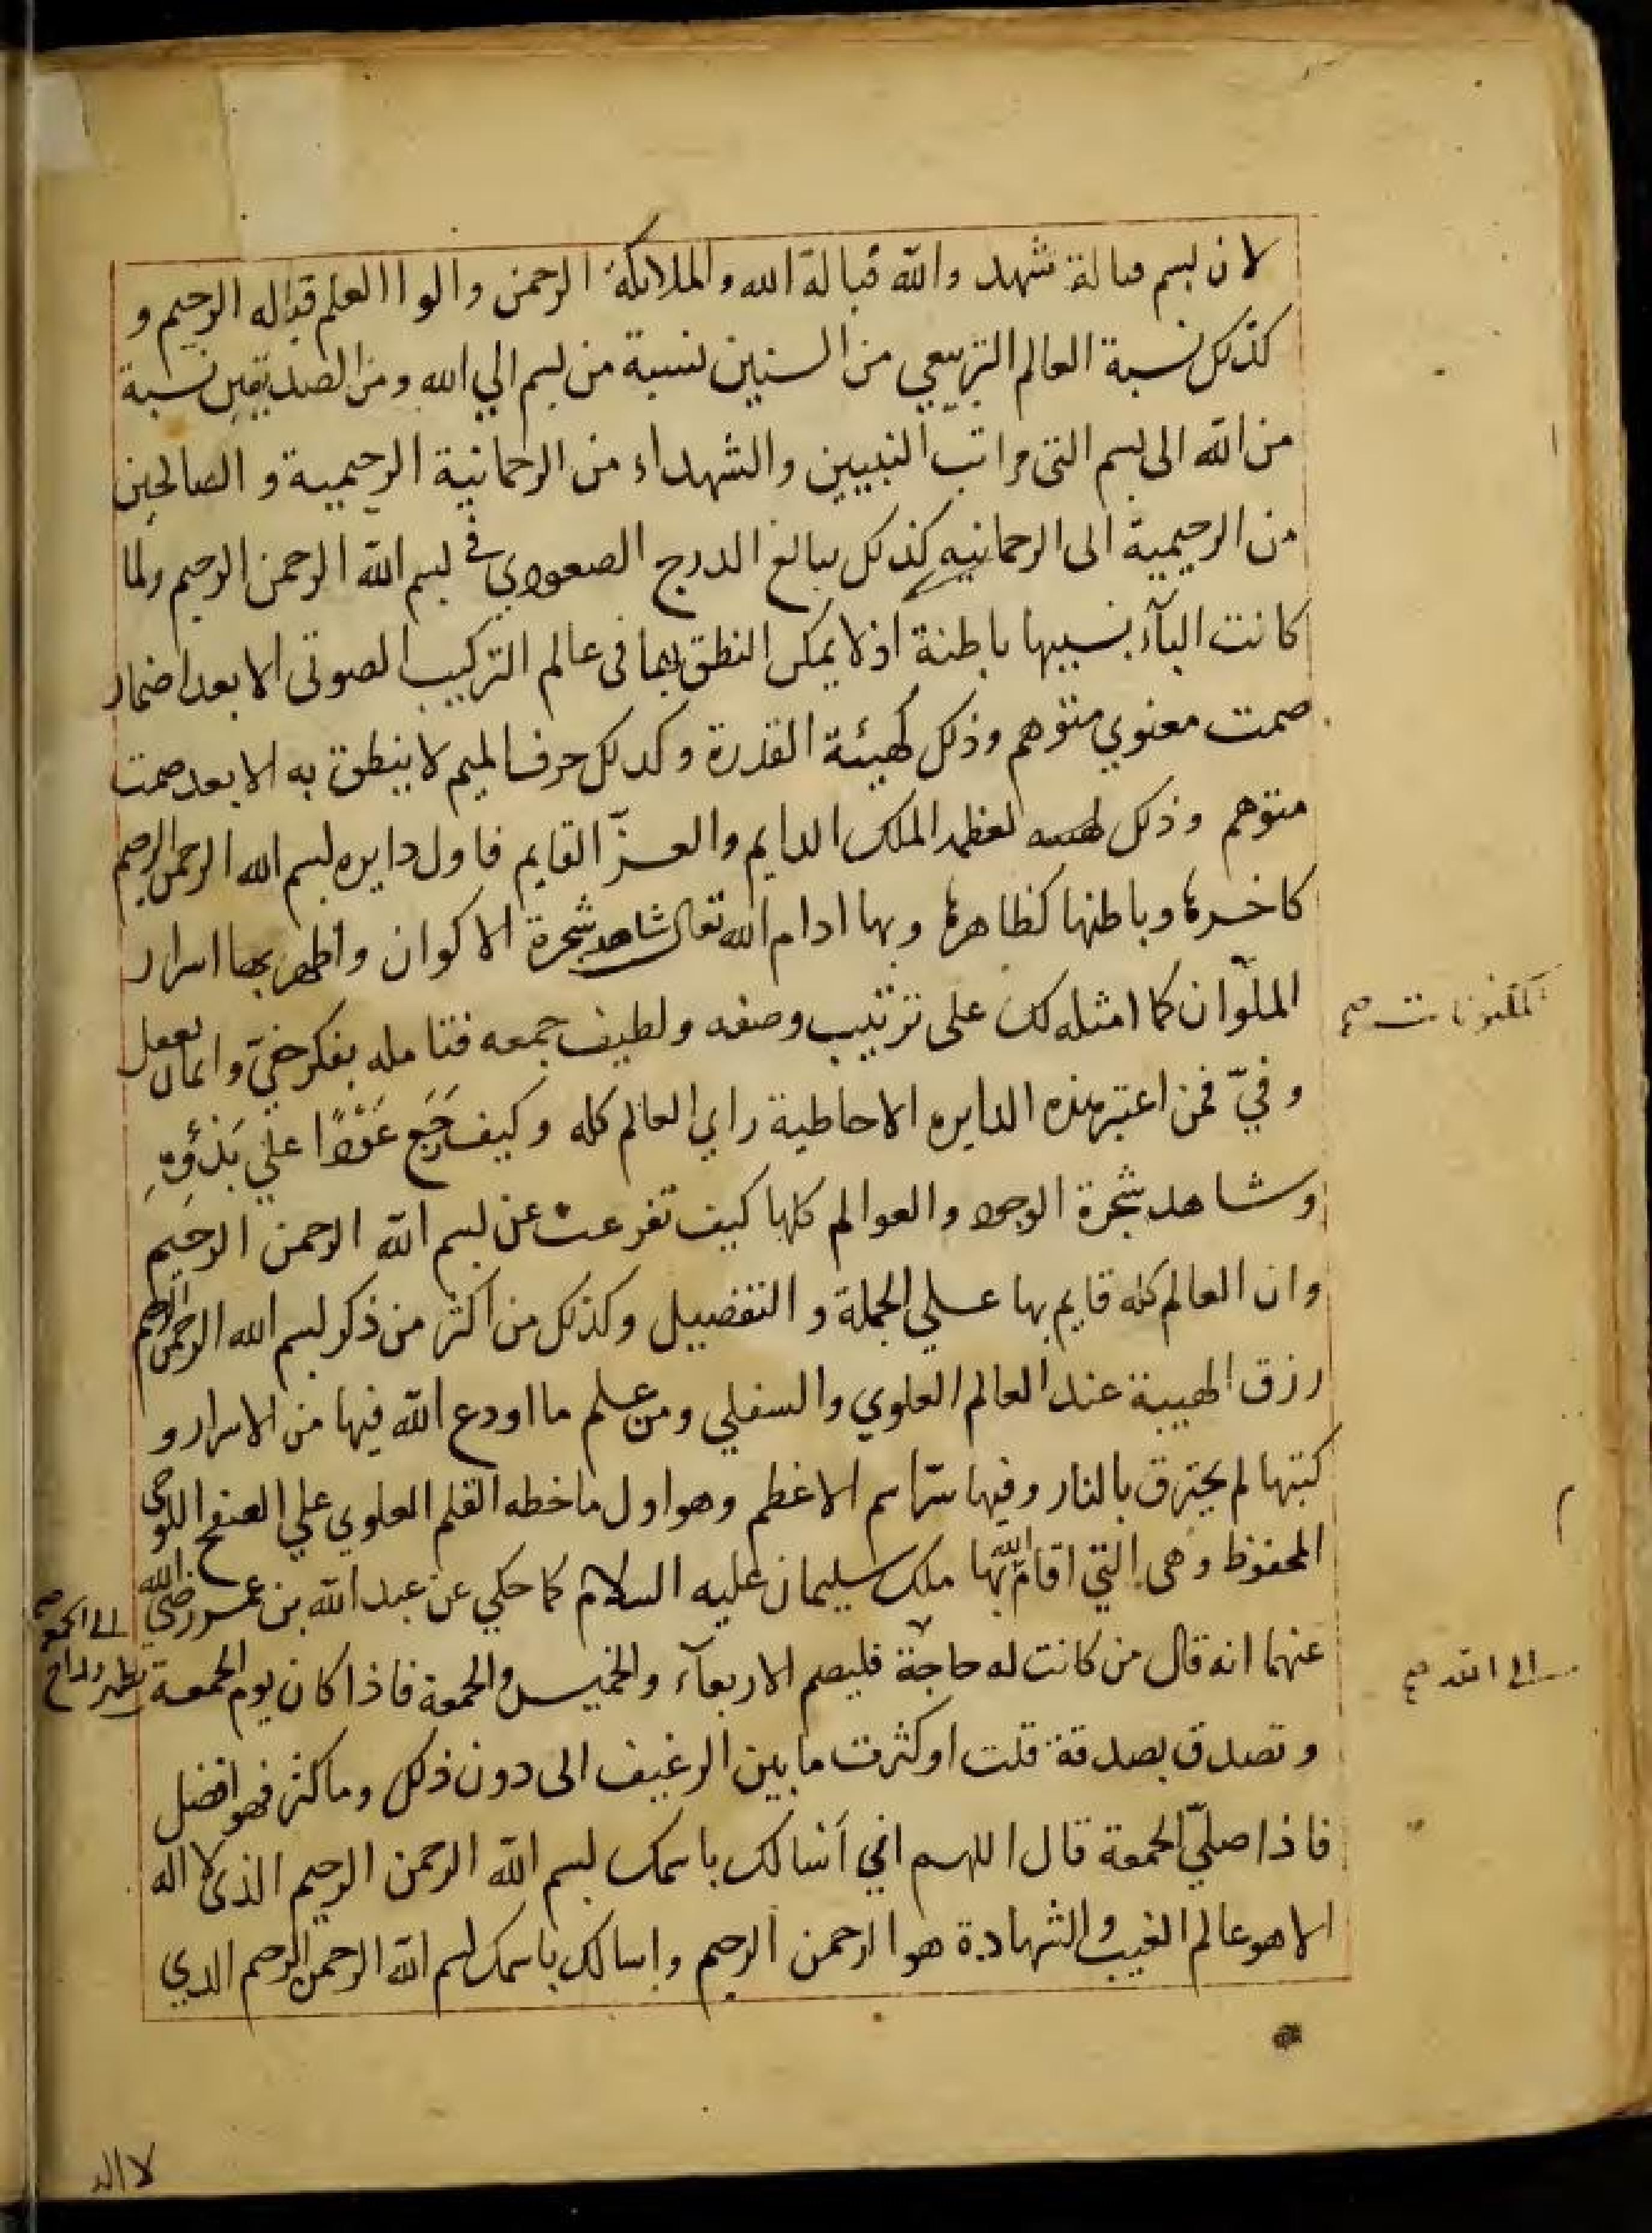 لان بسم قبالة شهد والله قبالة الله والملائكة الرحمن والوا العلم قباله الرحيم و
كذلك نسبة العالم التربيعي من السنين نسبة من بسم الي الله ومن الصديقين نسبة
من الله الى بسم التى مراتب النبيين والشهداء من الرحمانية الرحيمية و الصالحين
من الرحيمية الى الرحمانيه كذلك الدرج الصعودي في بسم الله الرحمن الرحيم ولما
كانت البآء باطنة اذ لا يمكن النطق بها فى عالم التركيب الصوتى الا بعد اضمار
صمت معنوي متوهم وذلك لهيئة القدرة وكدلك حرف الميم لا ينطق به الا بعد صمت
متوهم وذلك الملك الدايم والعزّ القايم فاول دايره بسم الله الرحمن الرحيم
كاخرها وباطنها كظاهرها وبها ادام الله تعالى شاهد شجرة الاكوان واظهر بها اسرار
الملوان كما امثله لك على ترتيب وصفه ولطيف جمعه فتامله بفكر خفيّ
وفيّ فمن اعتبر هذه الدايره الاحاطية راي العالم كله وكيف رَجَع عَوْدًا علي بَدْؤِهِ
وشاهد شجرة الوجود والعوالم كلها كيف تفرعت عن بسم الله الرحمن الرحيم
وان العالم كله قايم بها علي الجملة و التفصيل وكذلك من اكثر من ذكر بسم الله الرحمن الرحيم
رزق الهيبة عند العالم العلوي والسفلي ومن علم ما اودع الله فيها من الاسرار و
كتبها لم يحترق بالنار وفيها سرّ اسم الاعظم وهو اول ما خطه القلم العلوي علي الصفح اللوحى
المحفوظ وهى التي اقام الله بها ملك سليمان عليه السلام كما حكي عن عبد الله بن عمر رضي الله
عنهما انه قال من كانت له حاجة فليصم الاربعآء والخميس والجمعة فاذا كان يوم الجمعة تطهر وراح
وتصدق بصدقة قلت او كثرت ما بين الرغيف الى دون ذلك وما كثر فهو افضل
فاذا صليّ الجمعة قال اللهم اني أسالك باسمك بسم الله الرحمن الرحيم الذى لا اله
الا هو عالم الغيب والشهادة هو الرحمن الرحيم واسالك باسمك بسم الله الرحمن الرحيم الدي
المكنونات صح
الى الله صح
الى الجمعة صح
لا اله